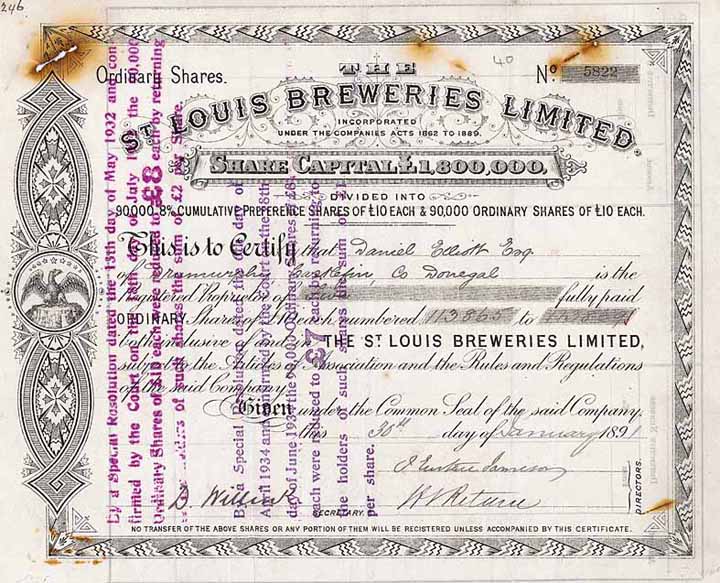 246
40
Ordinary Shares.
No. 5822
THE
ST LOUIS BREWERIES LIMITED.
INCORPORATED
UNDER THE COMPANIES ACTS 1862 TO 1889.
SHARE CAPITAL £1,800,000.
DIVIDED INTO
90,000 8% CUMULATIVE PREFERENCE SHARES OF £10 EACH & 90,000 ORDINARY SHARES OF £10 EACH.
This is to Certify that Daniel Elliott Esq
of Co Donegal is the
Registered Proprietor of fully paid
ORDINARY Shares of each numbered 113865 to
both inclusive of and in THE ST LOUIS BREWERIES LIMITED,
subject to the Articles of Association and the Rules and Regulations
of the said Company
Given under the Common Seal of the said Company,
this 30th day of January 1891
J Eustace Jameson
DIRECTORS.
SECRETARY.
NO TRANSFER OF THE ABOVE SHARES OR ANY PORTION OF THEM WILL BE REGISTERED UNLESS ACCOMPANIED BY THIS CERTIFICATE.
By a Special Resolution dated the 13th day of May 1932 and con-
firmed by the Court on the 18th day of July 1932 the 90,000
Ordinary Shares of £10 each were reduced to £8 each by returning
holders of such shares the sum of £2 per Share.
By a Special Resolution dated the day of
April 1934 and confirmed by the Court the 18th
day of June 1934 the 90,000 Ordinary Shares of £8
each were reduced to £7 each by returning to
the holders of such shares the sum of £1
per share.